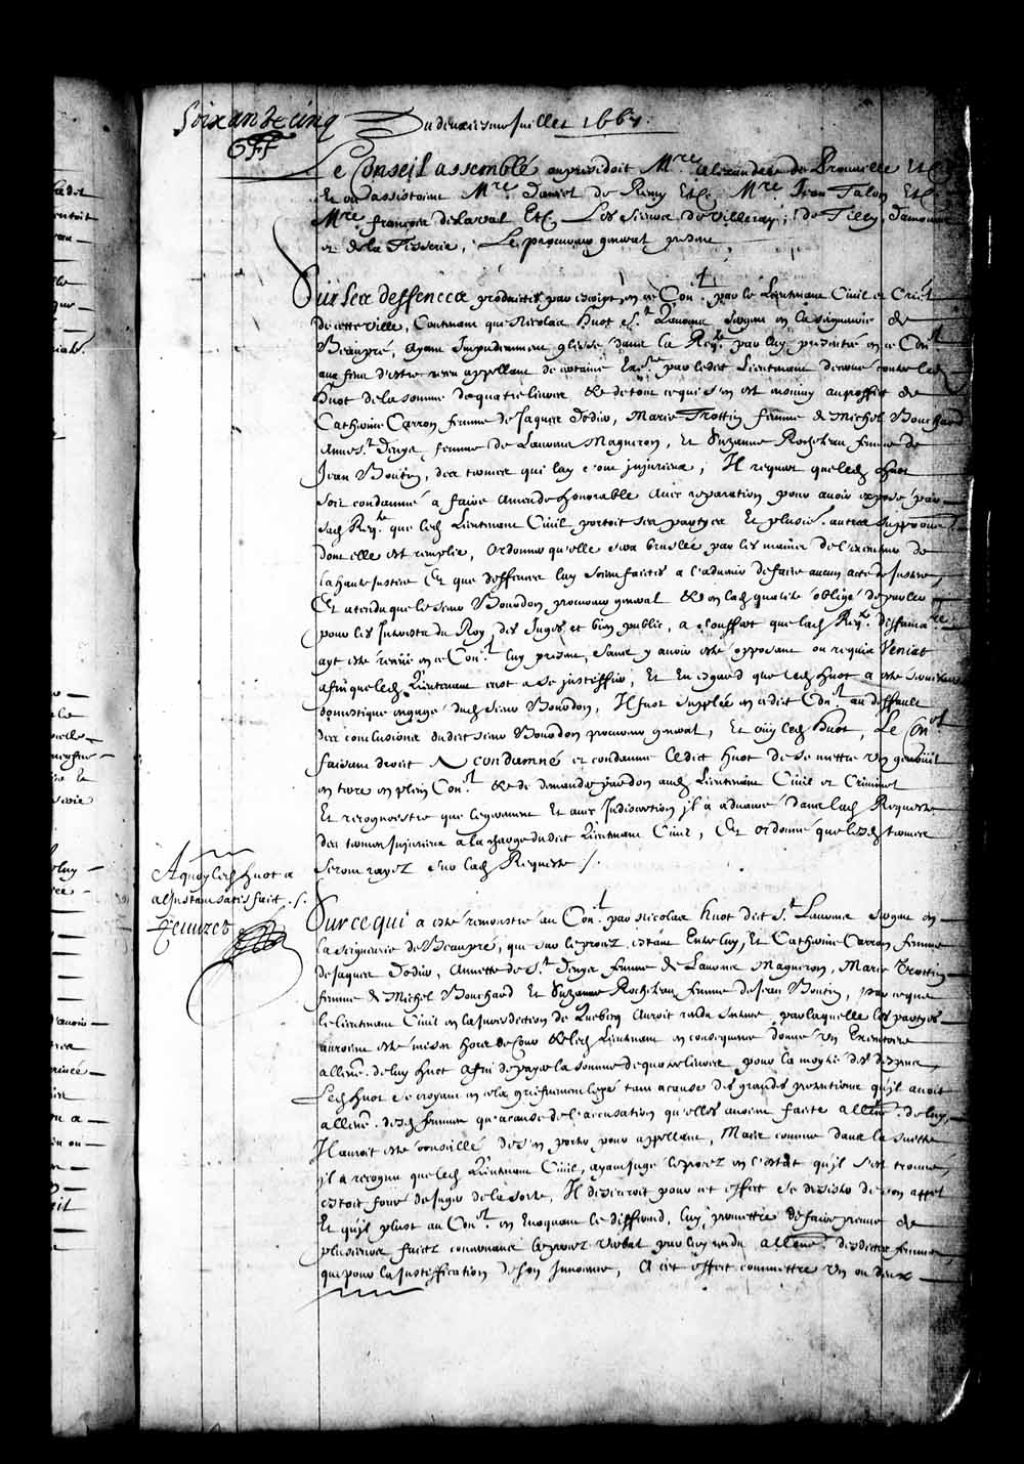 Soixante cinq
Du deuxiesme Juillet 1667.
Le Conseil assemblé auquel presidoit Mre Alexandre de Prouville
Et ou assistoient Mre Daniel de Remy Etc. Mre Jean Talon Etc.
Mre françois de Laval Etc. Les sieurs de Villeray, de Tilly, Damours
et de la Tesserie, Le procureur general present
Sur les deffences produittes par escript en ce Conl. par le Lieutenant Civil et Criel
de cette ville, Contenant que Nicolas huot St. Laurens en la seigneurie de
Beaupré, ayant Impudemment glissé dans la Reqte par luy presentée en ce Conl
aux fins d'estre receu appellant de certaine par ledit Lieutenant decerné contre led.
huot de la somme de quatre livres et de tout ce qui s'en est ensuivy au proffit de
Catherine Carron femme de Jaques Dodier, Marie Trottin femme de Michel Bouchard
Anne St. Denys femme de Laurens Magneron, Et Suzanne Rocheteau femme de
Jean Boutin, des termes qui luy sont injurieux, Il requert que led. huot
soit condamné a faire amende honorable avec reparation pour avoir exposé par
sad. Reqte que led. Lieutenant Civil portoit ses partyes Et plusrs. autres
dont elle est remplie, Ordonner qu'elle sera bruslée par les mains de l'executeur de
la haute Justice Et que deffences luy soient faictes a l'advenir de faire aucun acte de Justice,
Et attendu que le sieur Bourdon procureur general et en lad. qualité obligé de parler
pour les Interests du Roy, des Juges et bien public, a souffert que lad. Reqte. diffamare
ayt esté veüe en ce Conl. luy present, sans y avoir esté opposant ou requis Veniat
afin que led. Lieutenant eust a se justiffier, Et En esgard que led. huot a esté
domestique engagé dud. sieur Bourdon, Il soit supplée en cedit Conl au deffault
des conclusions dudit sieur Bourdon procureur general, Et ouy led. huot, Le Conel
faisant droit A condamné et condamne ledit huot de se mettre Un genouil
en terre en plein Conl. et de demander pardon aud. Lieutenant Civil et Criminel
Et recognoistre que legerement Et avec Indiscretion il a advancé dans lad. Requeste
des termes Injurieux a la charge dudict Lieutenant Civil, Et ordonné que lesd. termes
seront rayez sur lad. Requeste /.
A quoy led. huot a
a l'Instant satisfait. /.
Peuvret
Sur ce qui a esté remonstré au Conl. par Nicolas huot dict St. Laurens en
la seigneurie de Beaupré, que sur le procez estant Entre luy, Et Catherine Carron femme
de Jaques Dodier, Annette de St. Denys femme de Laurens Magneron, Marie Trottin
femme de Michel Bouchard Et Suzanne Rocheteau femme de Jean Boutin, par ce que
le lieutenant Civil en la Jurisdiction de Quebecq Auroit rendu sentence, par laquelle les partyes
auroient esté mises hors de Cour et led. Lieutenant en consequence donné Un Executoire
allenc. de luy huot afin de payer la somme de quatre livres, pour la moytié des despens,
Led. huot se croyant en cela griefvement lezé tant a cause des grandes pretentions qu'il avoit
allenc. desd. femmes qu'a cause de l'accusation qu'elles avoient faicte allenc. de luy,
Il auroit esté conseillé de s'en porter pour appellant, Mais comme dans la suitte
il a recognu que led. Lieutenant Civil, ayant jugé le procez en l'estat qu'il s'est trouvé,
estoit fondé de juger de la sorte, Il desireroit pour cet effect se desister de son appel
Et qu'il plust au Conl. en Evoquant le differend, luy permettre de faire preuve de
plusieurs faicts contenus au procez verbal par luy rendu allenc. desdites femmes
que pour la justiffication de son Innocence, A cet effect commettre un ou deux